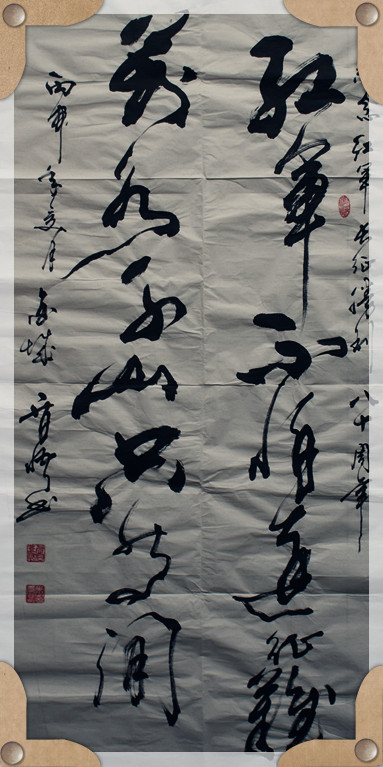 纪念红军长征胜利八十周年
红军不怕远征难
万水千山只等闲
丙申年
月